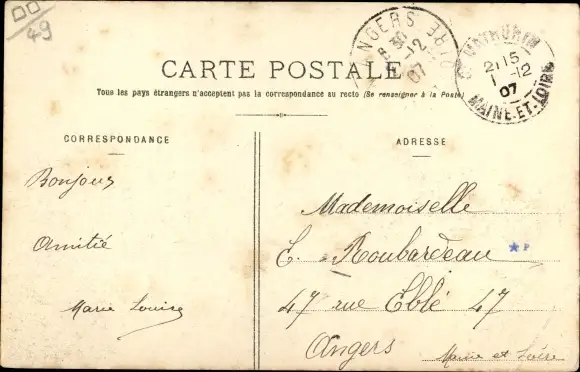 49
ANGERS GARE
6 30
1-12
07
ST MATHURIN
21 15
1-12
07
MAINE-ET-LOIRE
CARTE POSTALE
Tous les pays étrangers n'acceptent pas la correspondance au recto (Se renseigner à la Poste)
CORRESPONDANCE
Bonjour
Amitié
Marie Louise
ADRESSE
Mademoiselle
E. Roubardeau
47 rue Eblé 47
Angers Maine et Loire